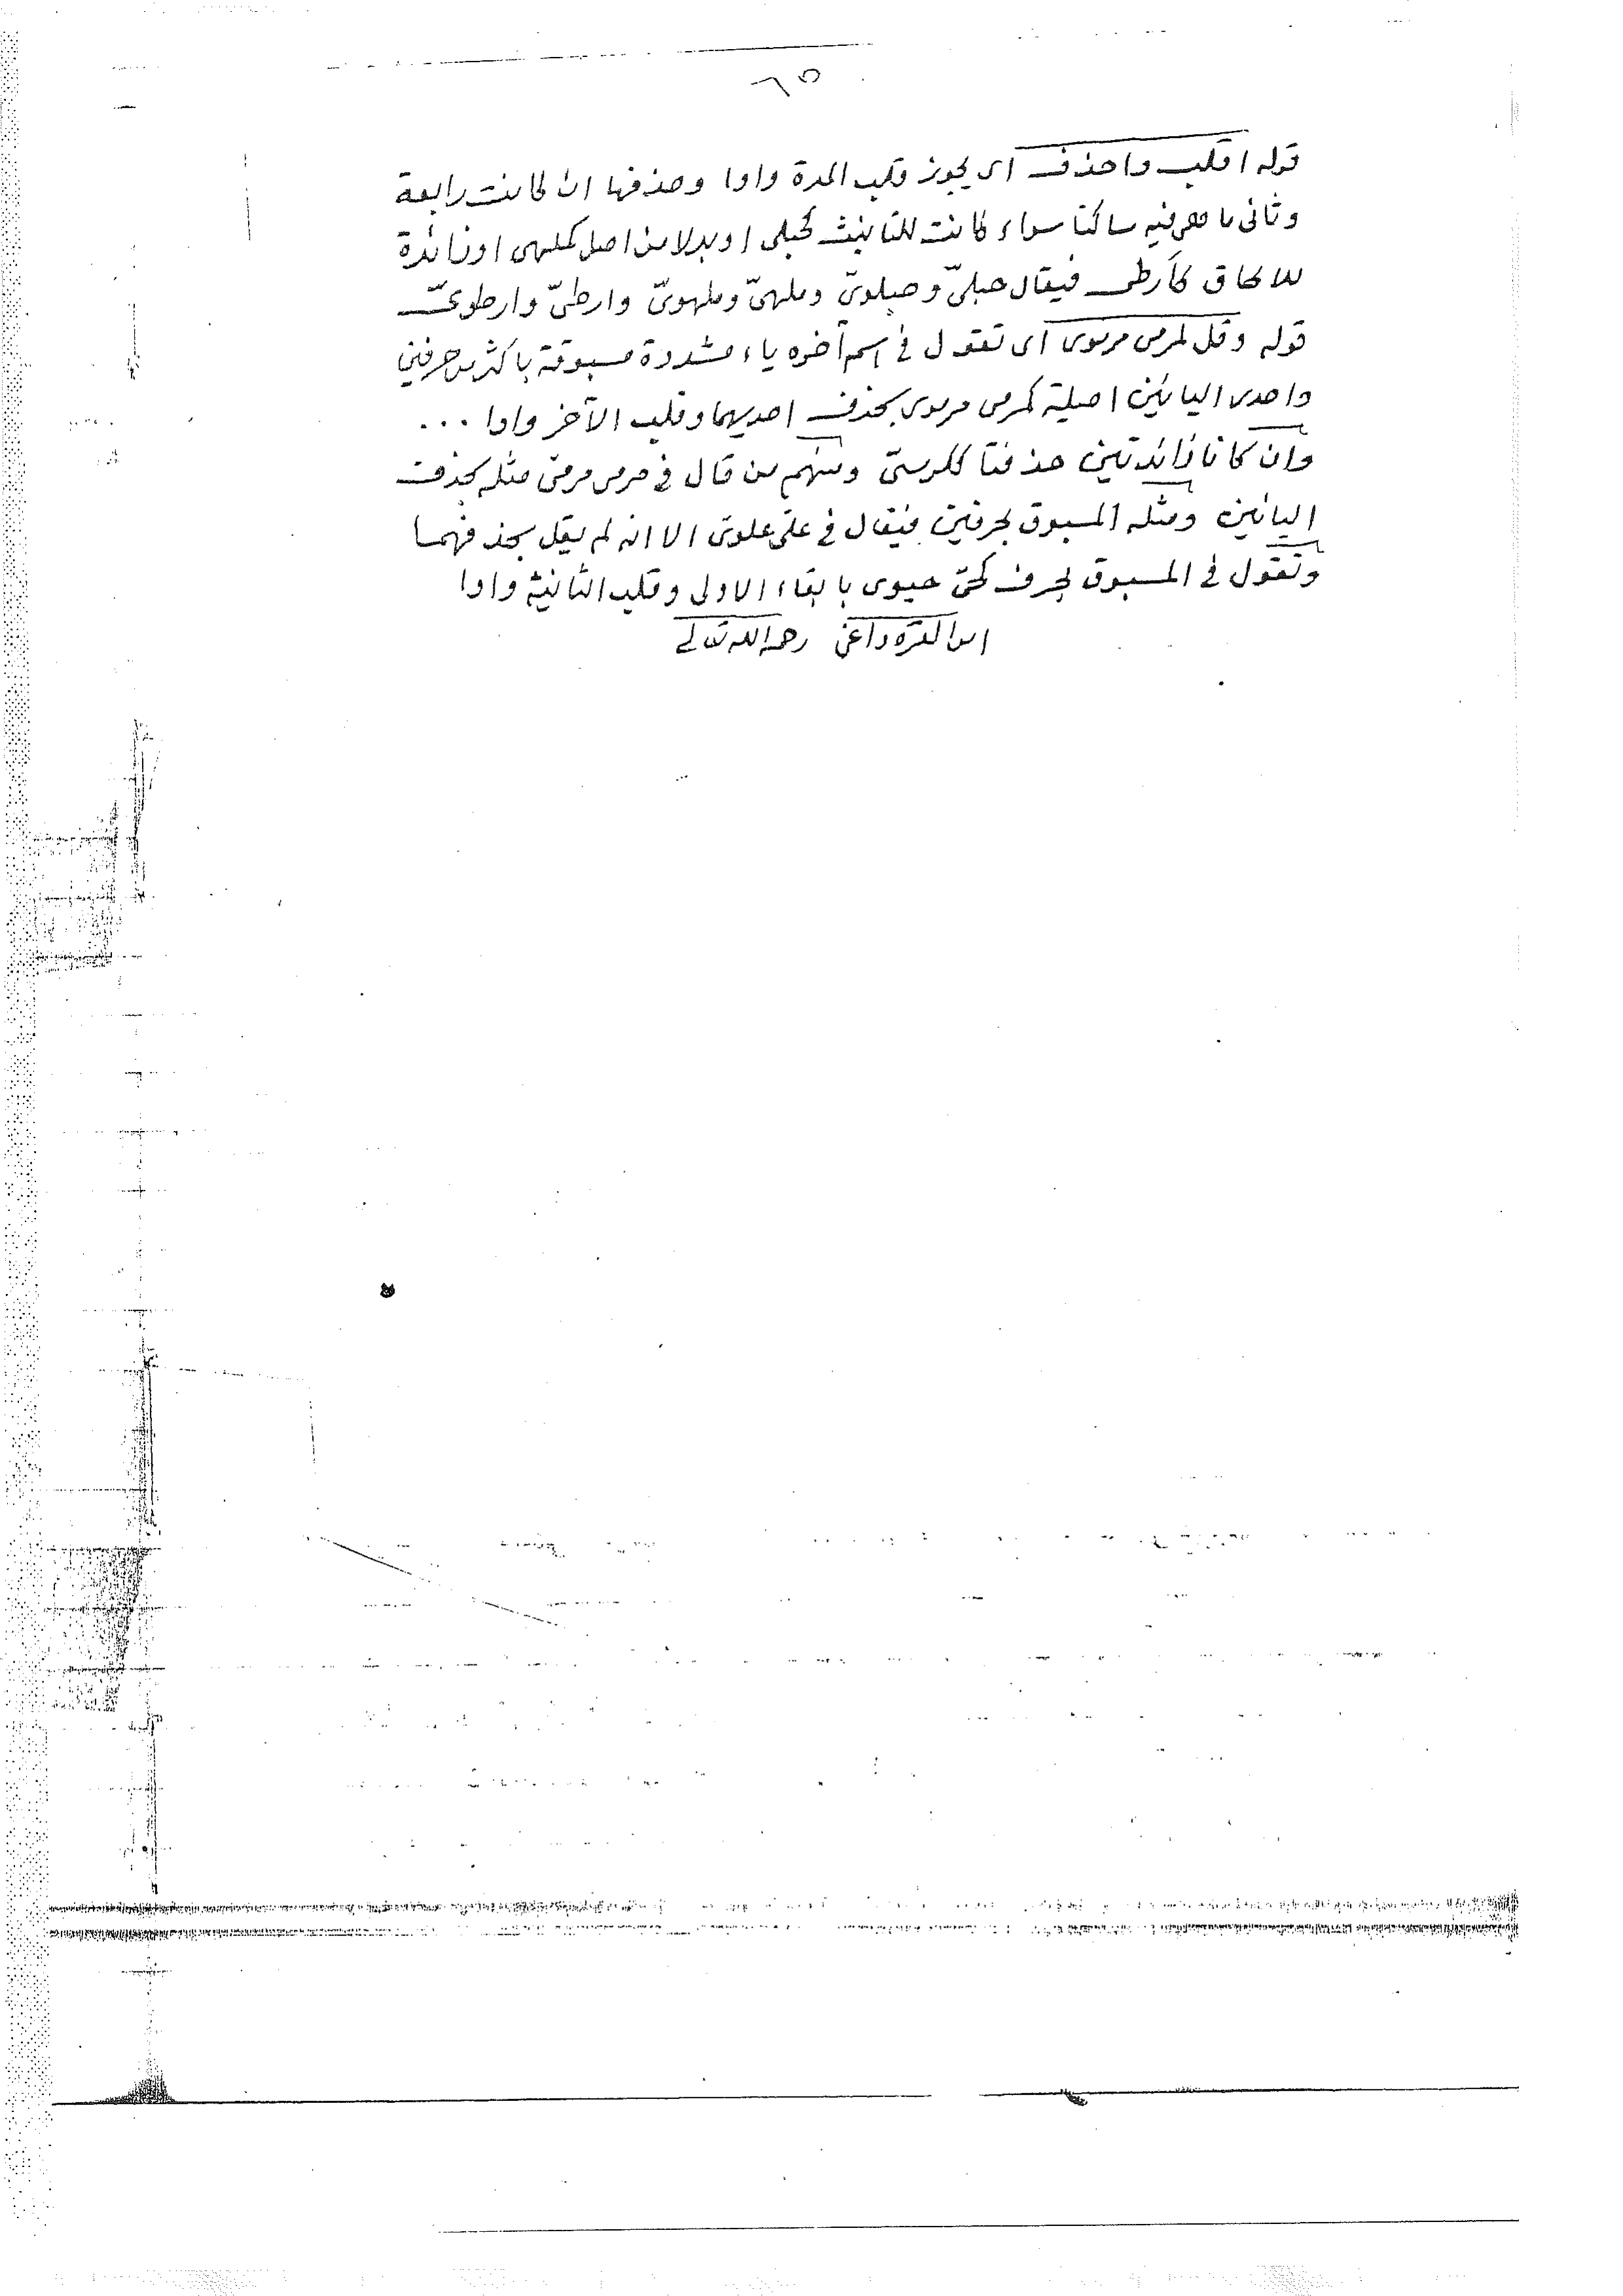 ٦٥
قوله اقلب واحذف اى يجوز قلب المدة واوا وحذفها ان كانت رابعة
وثانى ما هى فيه ساكنا سواء كانت للتانيث كحبلى او بدلا من اصل كملهى او زائدة
للالحاق كأرطى فيقال حبلىّ وحبلوىّ وملهىّ وملهوىّ وارطىّ وارطوىّ
قوله وقل لمرمى مرموى اى تقول فى اسم آخره ياء مشددة مسبوقة باكثر من حرفين
واحدى اليائين اصلية كمرمى مرموى بحذف احديهما وقلب الآخر واوا ...
وان كانا زائدتين حذفتا ككرسىّ ومنهم من قال فى مرمى مرمىّ مثله بحذف
اليائين ومثله المسبوق بحرفين فيقال فى علىّ علوىّ الا انه لم يقل بحذفهما
وتقول فى المسبوق بحرف كحىّ حيوى بابقاء الاولى وقلب الثانية واوا
ابن القره داغى رحمه الله تعالى